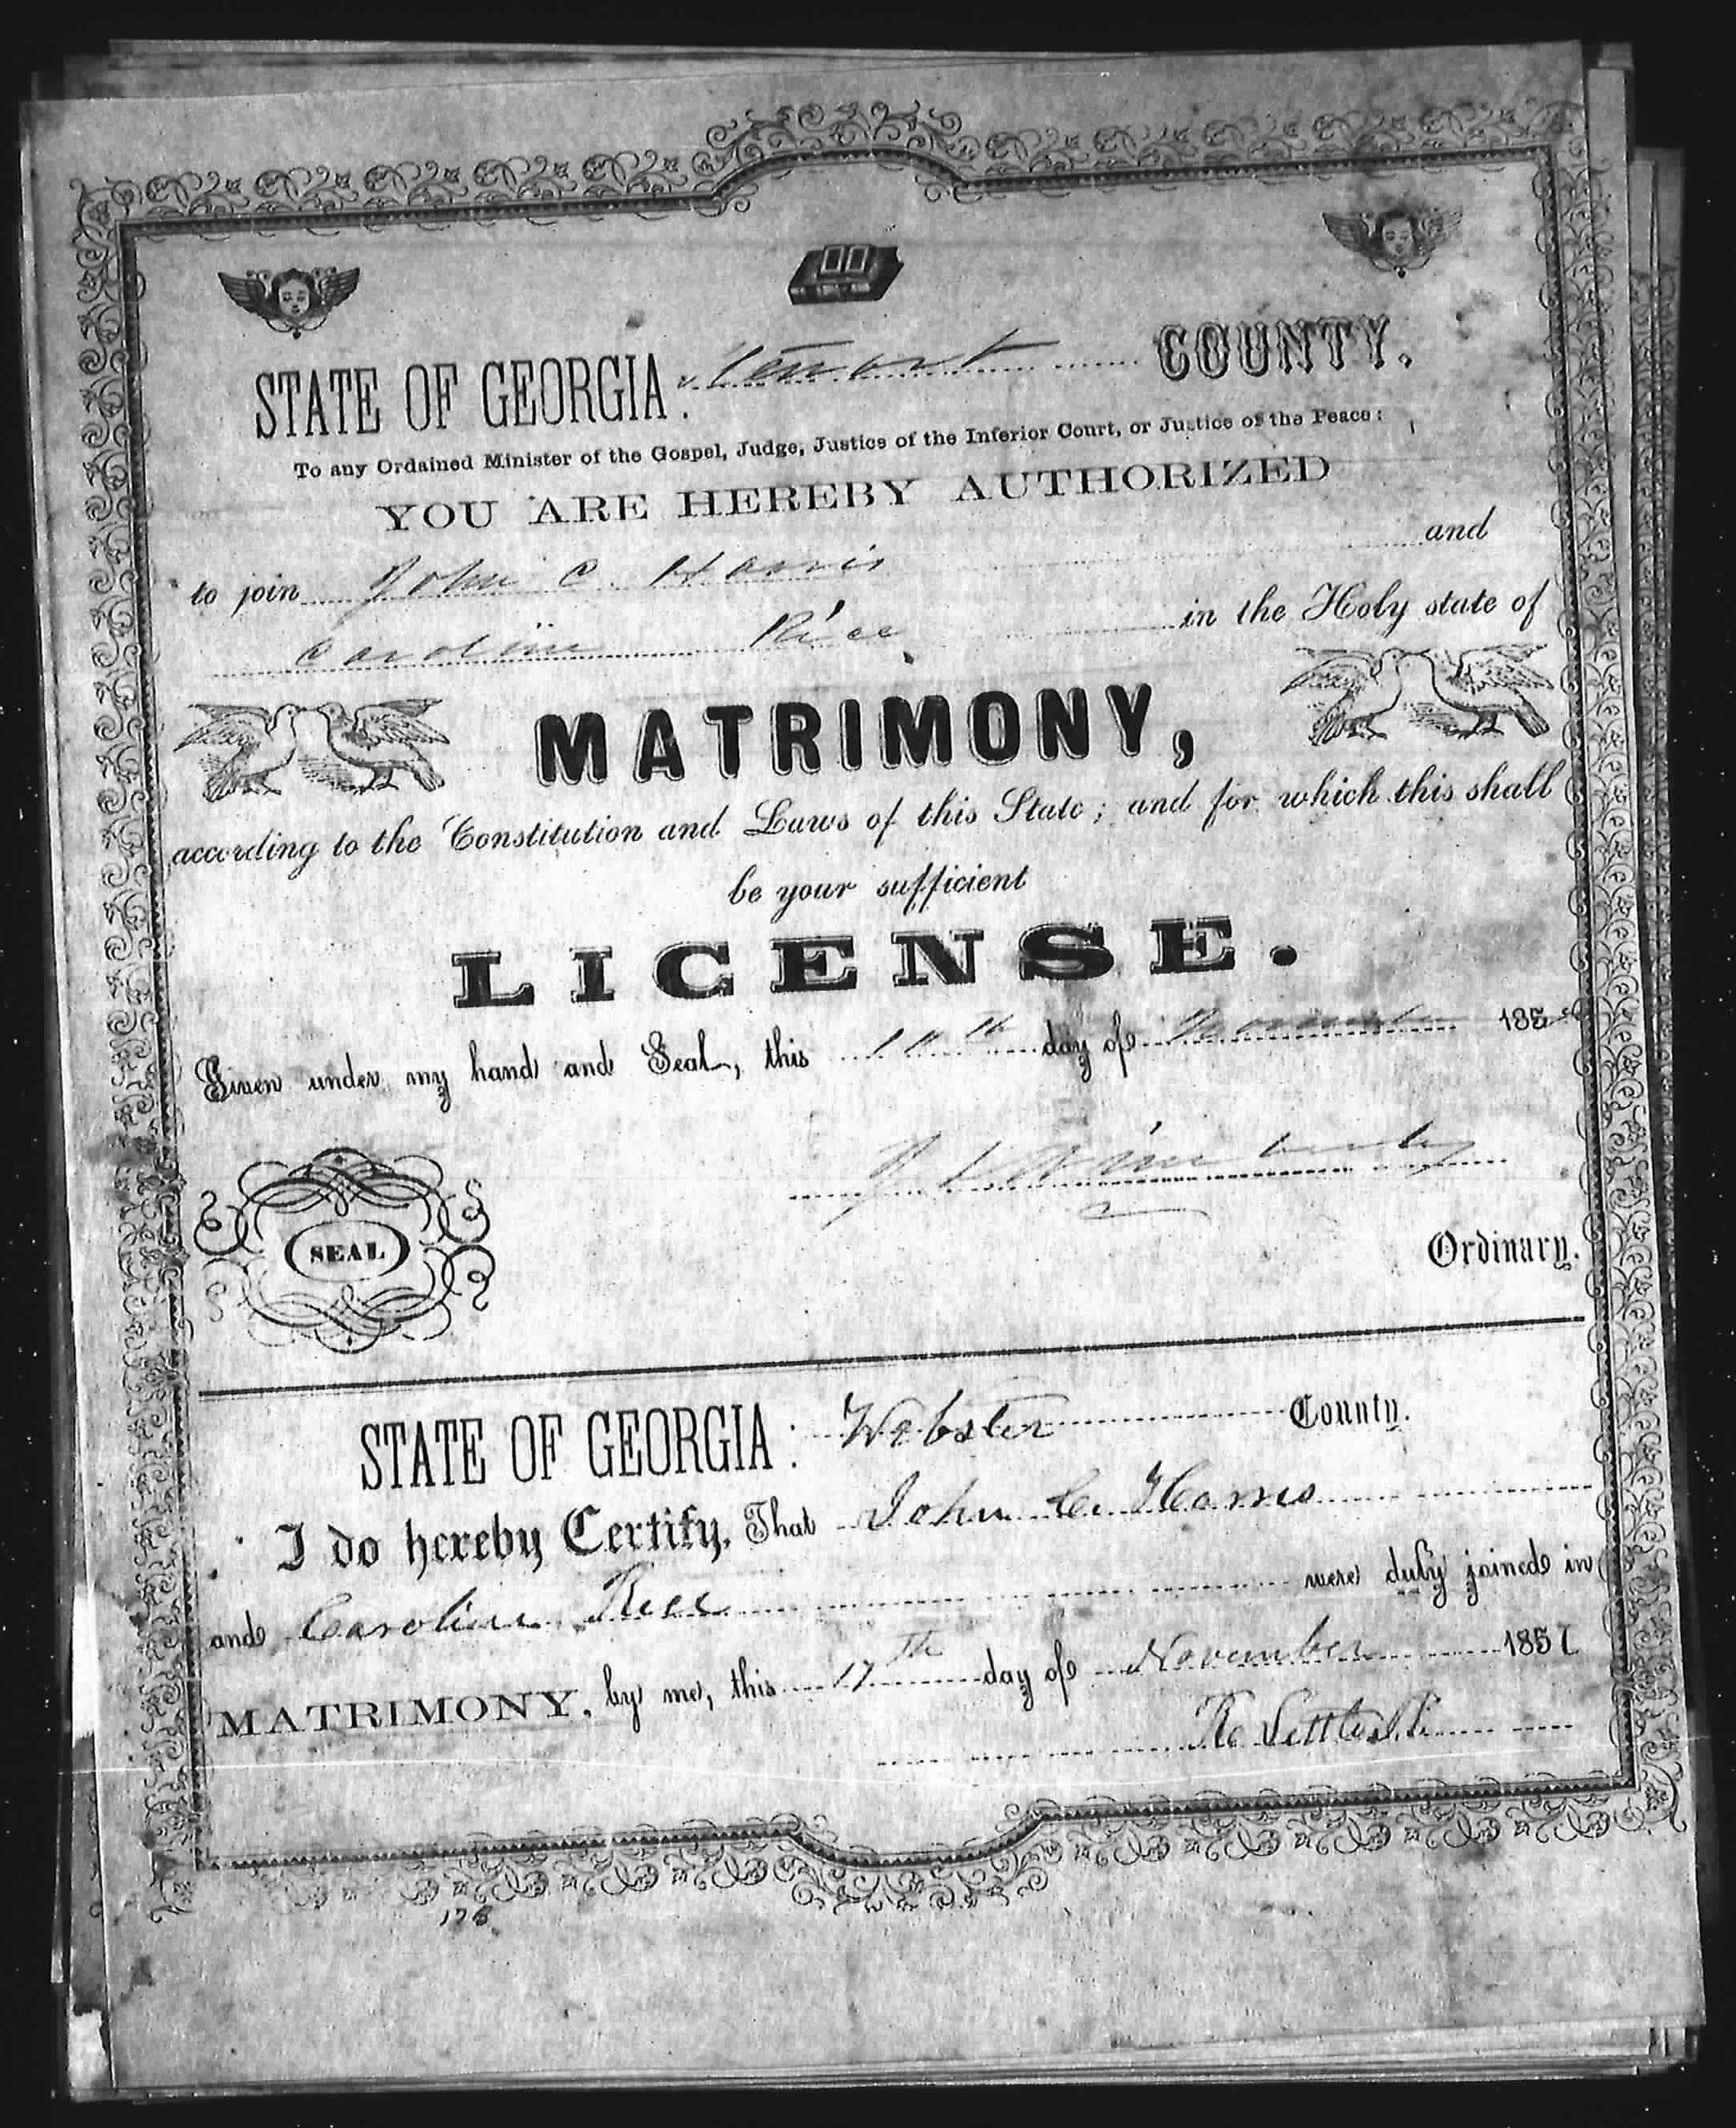 STATE OF GEORGIA: Stewart COUNTY.
To any Ordained Minister of the Gospel, Judge, Justice of the Inferior Court, or Justice of the Peace:
YOU ARE HEREBY AUTHORIZED
to join John C. Harris and
Caroline Rice in the Holy state of
MATRIMONY,
according to the Constitution and Laws of this State; and for which this shall
be your sufficient
LICENSE.
Given under my hand and Seal, this day of November 185
SEAL
Ordinary.
STATE OF GEORGIA: Webster County.
I do hereby Certify, That John C. Harris
and Caroline Rice were duly joined in
MATRIMONY, by me, this 17th day of November 1857
176